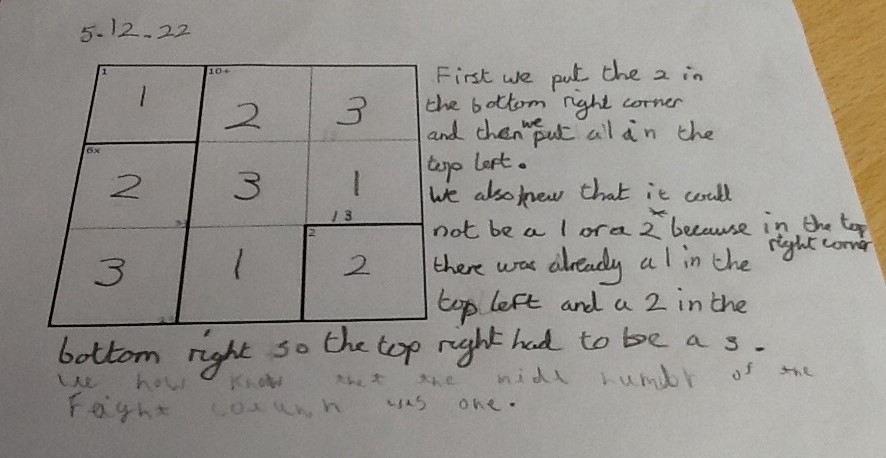 5.12.22
1 10+
1 2 3
6x
2 3 1
13
2
3 1 2
First we put the 2 in
the bottom right corner
and then we put a 1 in the
top left.
We also knew that it could
not be a 1 or a 2 because in the top
right corner
there was already a 1 in the
top left and a 2 in the
bottom right so the top right had to be a 3.
We now know that the midd number of the
right column was one.